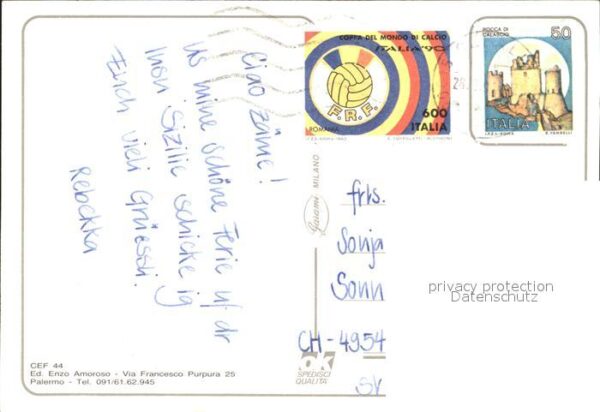 Ciao zäme!
Us mine schöne Ferie uf dr
Insn Sizilie schicke ig
Euch vieli Grüessli.
Rebekka
COPPA DEL MONDO DI CALCIO
ITALIA '90
F.R.F.
ROMANIA
600
ITALIA
ROCCA DI
CALASCIO
50
ITALIA
I.P.Z.S. ROMA
Gaiami MILANO
frls.
Sonja
Sonn
CH-4954
SV
privacy protection
Datenschutz
ok
SPEDISCI
QUALITA'
CEF 44
Ed. Enzo Amoroso - Via Francesco Purpura 25
Palermo - Tel. 091/61.62.945